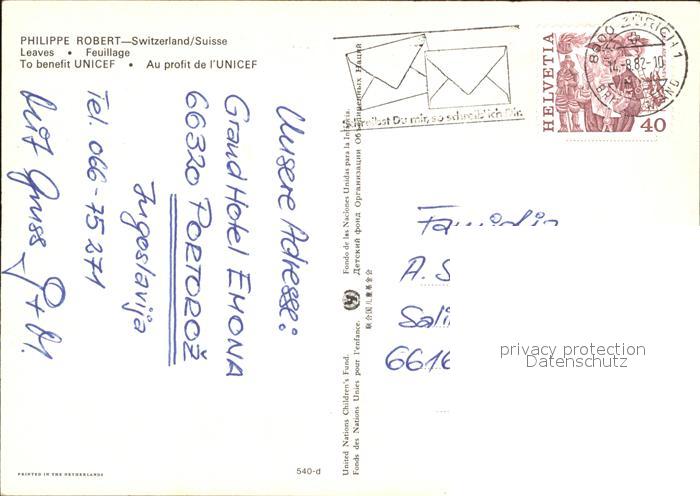 PHILIPPE ROBERT—Switzerland/Suisse
Leaves • Feuillage
To benefit UNICEF • Au profit de l'UNICEF
Unsere Adresse:
Grand Hotel EMONA
66320 PORTOROŽ
Jugoslavija
Tel. 066-75271
Mit Gruss
PRINTED IN THE NETHERLANDS
540-d
United Nations Children's Fund. Fondo de las Naciones Unidas para la Infancia.
Fonds des Nations Unies pour l'enfance. 联合国儿童基金会 Детский фонд Организации Объединенных Наций
schreibst Du mir, so schreib ich Dir
8000 ZÜRICH 1
14.-8.82-10
HELVETIA
40
A. S
Sali
6616
privacy protection
Datenschutz